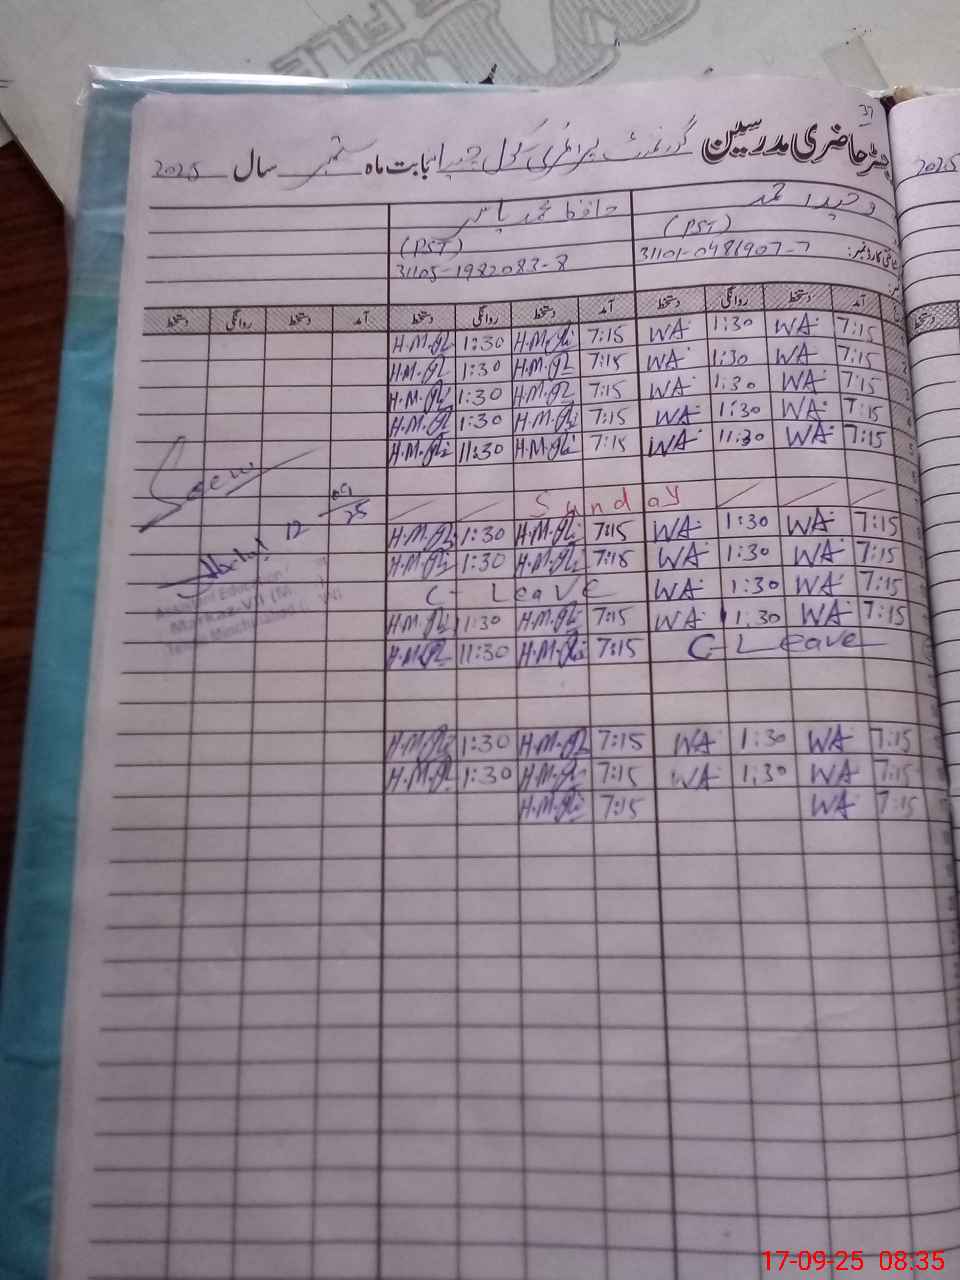 FILE
37
رجسٹر حاضری مدرسین گورنمنٹ پرائمری سکول بابت ماہ ستمبر سال 2025
2025
وحید احمد حافظ محمد یاسر
(PST) (PST)
شناختی کارڈ نمبر: 31101-0481907-7 31105-1982083-8
آمد دستخط روانگی دستخط آمد دستخط روانگی دستخط آمد دستخط روانگی دستخط
7:15 WA 1:30 WA 7:15 H.M. 1:30 H.M.
7:15 WA 1:30 WA 7:15 H.M. 1:30 H.M.
7:15 WA 1:30 WA 7:15 H.M. 1:30 H.M.
7:15 WA 1:30 WA 7:15 H.M. 1:30 H.M.
7:15 WA 11:30 WA 7:15 H.M. 11:30 H.M.
Seen
Sunday
12 09/25
7:15 WA 1:30 WA 7:15 H.M. 1:30 H.M.
7:15 WA 1:30 WA 7:15 H.M. 1:30 H.M.
7:15 WA 1:30 WA C- Leave
Assistant Education
7:15 WA 1:30 WA 7:15 H.M. 1:30 H.M.
Markaz
C-Leave 7:15 H.M. 11:30 H.M.
7:15 WA 1:30 WA 7:15 H.M. 1:30 H.M.
7:15 WA 1:30 WA 7:15 H.M. 1:30 H.M.
7:15 WA 7:15 H.M.
17-09-25 08:35